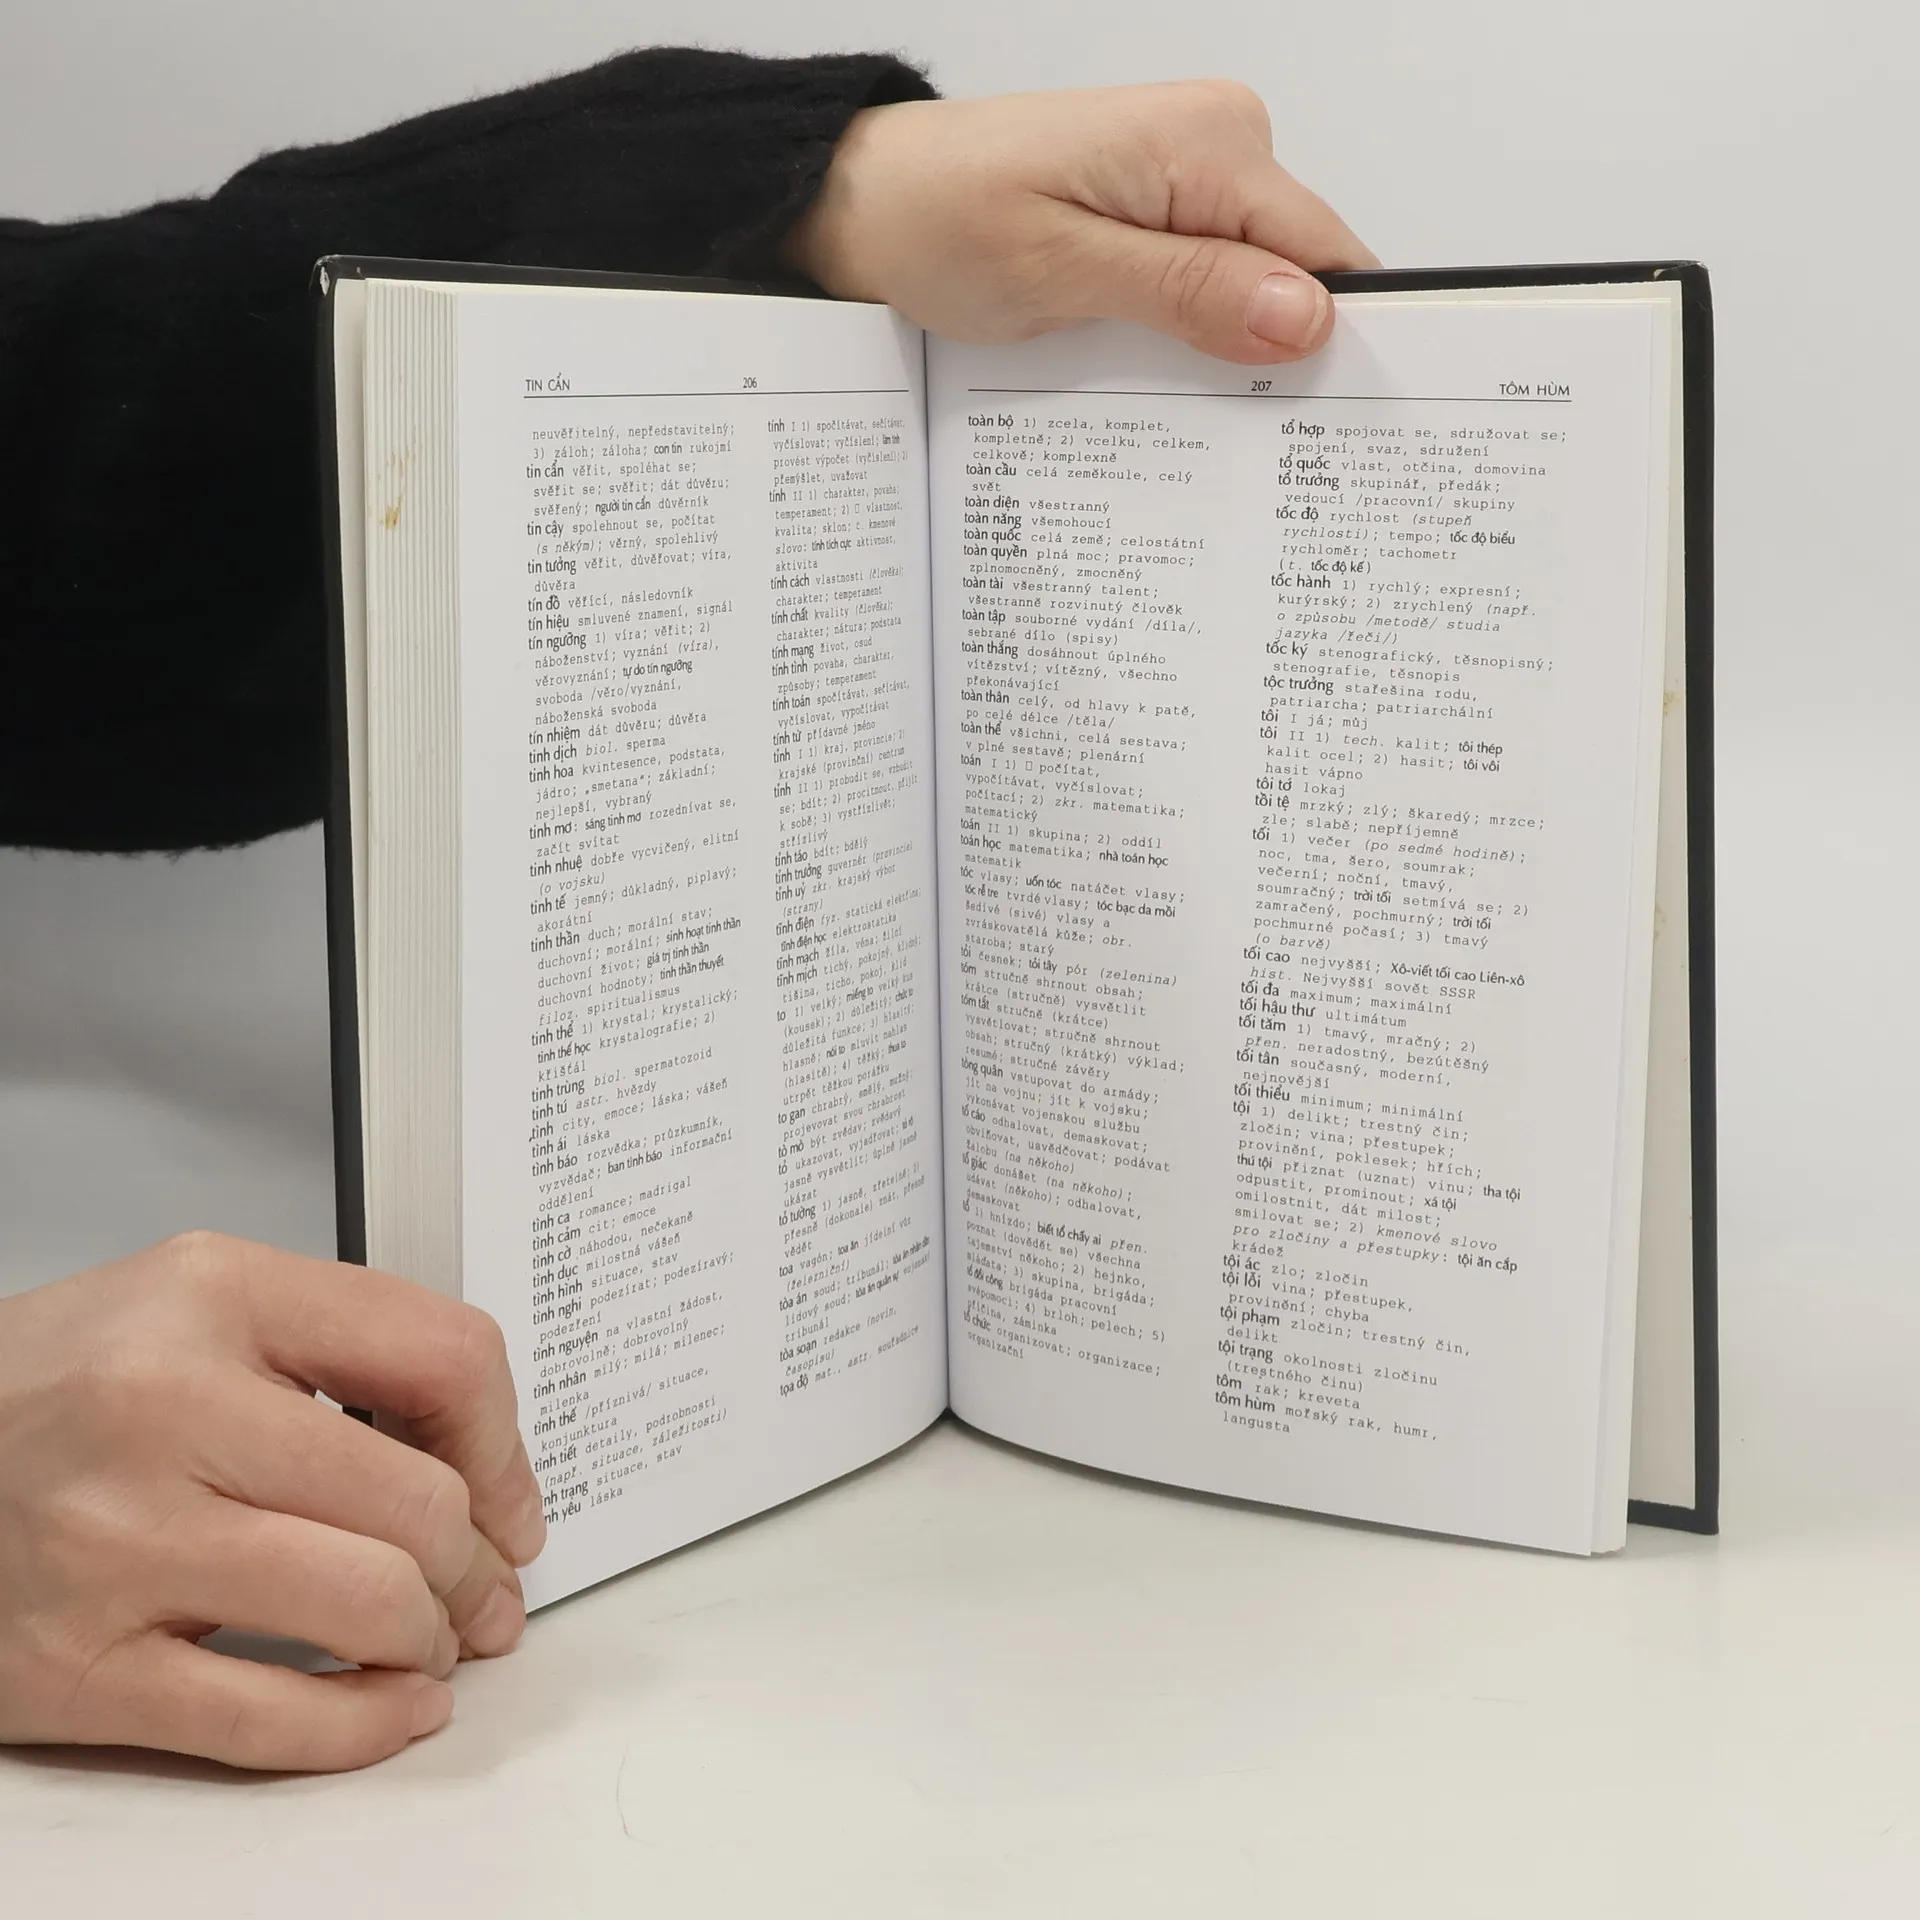 TIN CẨN 206
neuvěřitelný, nepředstavitelný;
3) záloh; záloha; con tin rukojmí
tin cẩn věřit, spoléhat se;
svěřit se; svěřit; dát důvěru;
svěřený; người tin cẩn důvěrník
tin cậy spolehnout se, počítat
(s někým); věrný, spolehlivý
tin tưởng věřit, důvěřovat; víra,
důvěra
tín đồ věřící, následovník
tín hiệu smluvené znamení, signál
tín ngưỡng 1) víra; věřit; 2)
náboženství; vyznání (víra),
věrovyznání; tự do tín ngưỡng
svoboda /věro/vyznání,
náboženská svoboda
tín nhiệm dát důvěru; důvěra
tinh dịch biol. sperma
tinh hoa kvintesence, podstata,
jádro; „smetana“; základní;
nejlepší, vybraný
tinh mơ: sáng tinh mơ rozednívat se,
začít svítat
tinh nhuệ dobře vycvičený, elitní
(o vojsku)
tinh tế jemný; důkladný, piplavý;
akorátní
tinh thần duch; morální stav;
duchovní; morální; sinh hoạt tinh thần
duchovní život; giá trị tinh thần
duchovní hodnoty; tinh thần thuyết
filoz. spiritualismus
tinh thể 1) krystal; krystalický;
tinh thể học krystalografie; 2)
křišťál
tinh trùng biol. spermatozoid
tinh tú astr. hvězdy
tình city, emoce; láska; vášeň
tình ái láska
tình báo rozvědka; průzkumník,
vyzvědač; ban tình báo informační
oddělení
tình ca romance; madrigal
tình cảm cit; emoce
tình cờ náhodou, nečekaně
tình dục milostná vášeň
tình hình situace, stav
tình nghi podezírat; podezíravý;
podezření
tình nguyện na vlastní žádost,
dobrovolně; dobrovolný
tình nhân milý; milá; milenec;
milenka
tình thế /příznivá/ situace,
konjunktura
tình tiết detaily, podrobnosti
(např. situace, záležitosti)
nh trạng situace, stav
nh yêu láska
tính I 1) spočítávat, sečítávat,
vyčíslovat; vyčíslení; làm tính
provést výpočet (vyčíslení); 2)
přemýšlet, uvažovat
tính II 1) charakter, povaha;
temperament; 2) vlastnost,
kvalita; sklon; t. kmenové
slovo: tính tích cực aktivnost,
aktivita
tính cách vlastnosti (člověka);
charakter; temperament
tính chất kvality (člověka);
charakter; nátura; podstata
tính mạng život, osud
tính tình povaha, charakter,
způsoby; temperament
tính toán spočítávat, sečítávat,
vyčíslovat, vypočítávat
tính từ přídavné jméno
tỉnh I 1) kraj, provincie; 2)
krajské (provinční) centrum
tỉnh II 1) probudit se, vzbudit
se; bdít; 2) procitnout, přijít
k sobě; 3) vystřízlivět;
střízlivý
tỉnh táo bdít; bdělý
tỉnh trưởng guvernér (provincie)
tỉnh uỷ zkr. krajský výbor
(strany)
tĩnh điện fyz. statická elektřina;
tĩnh điện học elektrostatika
tĩnh mạch žíla, véna; žilní
tĩnh mịch tichý, pokojný, klidný;
tišina, ticho, pokoj, klid
to 1) velký; miếng to velký kus
(kousek); 2) důležitý; chức to
důležitá funkce; 3) hlasitý;
hlasně; nói to mluvit nahlas
(hlasitě); 4) těžký; thua to
utrpět těžkou porážku
to gan chrabrý, smělý, mužný;
projevovat svou chrabrost
tò mò být zvědav; zvědavý
tỏ ukazovat, vyjadřovat; tỏ rõ
jasně vysvětlit; úplně jasně
ukázat
tỏ tường 1) jasně, zřetelně; 2)
přesně (dokonale) znát, přesně
vědět
toa vagón; toa ăn jídelní vůz
(železniční)
tòa án soud; tribunál; tòa án nhân dân
lidový soud; tòa án quân sự vojenský
tribunál
tòa soạn redakce (novin,
časopisu)
tọa độ mat., astr. souřadnice
207 TÔM HÙM
toàn bộ 1) zcela, komplet,
kompletně; 2) vcelku, celkem,
celkově; komplexně
toàn cầu celá zeměkoule, celý
svět
toàn diện všestranný
toàn năng všemohoucí
toàn quốc celá země; celostátní
toàn quyền plná moc; pravomoc;
zplnomocněný, zmocněný
toàn tài všestranný talent;
všestranně rozvinutý člověk
toàn tập souborné vydání /díla/,
sebrané dílo (spisy)
toàn thắng dosáhnout úplného
vítězství; vítězný, všechno
překonávající
toàn thân celý, od hlavy k patě,
po celé délce /těla/
toàn thể všichni, celá sestava;
v plné sestavě; plenární
toán I 1) počítat,
vypočítávat, vyčíslovat;
počítací; 2) zkr. matematika;
matematický
toán II 1) skupina; 2) oddíl
toán học matematika; nhà toán học
matematik
tóc vlasy; uốn tóc natáčet vlasy;
tóc rễ tre tvrdé vlasy; tóc bạc da mồi
šedivé (sivé) vlasy a
zvráskovatělá kůže; obr.
staroba; starý
tỏi česnek; tỏi tây pór (zelenina)
tóm stručně shrnout obsah;
krátce (stručně) vysvětlit
tóm tắt stručně (krátce)
vysvětlovat; stručně shrnout
obsah; stručný (krátký) výklad;
resumé; stručné závěry
tòng quân vstupovat do armády;
jít na vojnu; jít k vojsku;
vykonávat vojenskou službu
tố cáo odhalovat, demaskovat;
obviňovat, usvědčovat; podávat
žalobu (na někoho)
tố giác donášet (na někoho);
udávat (někoho); odhalovat,
demaskovat
tổ 1) hnízdo; biết tổ chấy ai přen.
poznat (dovědět se) všechna
tajemství někoho; 2) hejnko,
mláďata; 3) skupina, brigáda;
tổ đổi công brigáda pracovní
svépomoci; 4) brloh; pelech; 5)
příčina, záminka
tổ chức organizovat; organizace;
organizační
tổ hợp spojovat se, sdružovat se;
spojení, svaz, sdružení
tổ quốc vlast, otčina, domovina
tổ trưởng skupinář, předák;
vedoucí /pracovní/ skupiny
tốc độ rychlost (stupeň
rychlosti); tempo; tốc độ biểu
rychloměr; tachometr
(t. tốc độ kế)
tốc hành 1) rychlý; expresní;
kurýrský; 2) zrychlený (např.
o způsobu /metodě/ studia
jazyka /řeči/)
tốc ký stenografický, těsnopisný;
stenografie, těsnopis
tộc trưởng stařešina rodu,
patriarcha; patriarchální
tôi I já; můj
tôi II 1) tech. kalit; tôi thép
kalit ocel; 2) hasit; tôi vôi
hasit vápno
tôi tớ lokaj
tồi tệ mrzký; zlý; škaredý; mrzce;
zle; slabě; nepříjemně
tối 1) večer (po sedmé hodině);
noc, tma, šero, soumrak;
večerní; noční, tmavý,
soumračný; trời tối setmívá se; 2)
zamračený, pochmurný; trời tối
pochmurné počasí; 3) tmavý
(o barvě)
tối cao nejvyšší; Xô-viết tối cao Liên-xô
hist. Nejvyšší sovět SSSR
tối đa maximum; maximální
tối hậu thư ultimátum
tối tăm 1) tmavý, mračný; 2)
přen. neradostný, bezútěšný
tối tân současný, moderní,
nejnovější
tối thiểu minimum; minimální
tội 1) delikt; trestný čin;
zločin; vina; přestupek;
provinění, poklesek; hřích;
thú tội přiznat (uznat) vinu; tha tội
odpustit, prominout; xá tội
omilostnit, dát milost;
smilovat se; 2) kmenové slovo
pro zločiny a přestupky: tội ăn cắp
krádež
tội ác zlo; zločin
tội lỗi vina; přestupek,
provinění; chyba
tội phạm zločin; trestný čin,
delikt
tội trạng okolnosti zločinu
(trestného činu)
tôm rak; kreveta
tôm hùm mořský rak, humr,
langusta